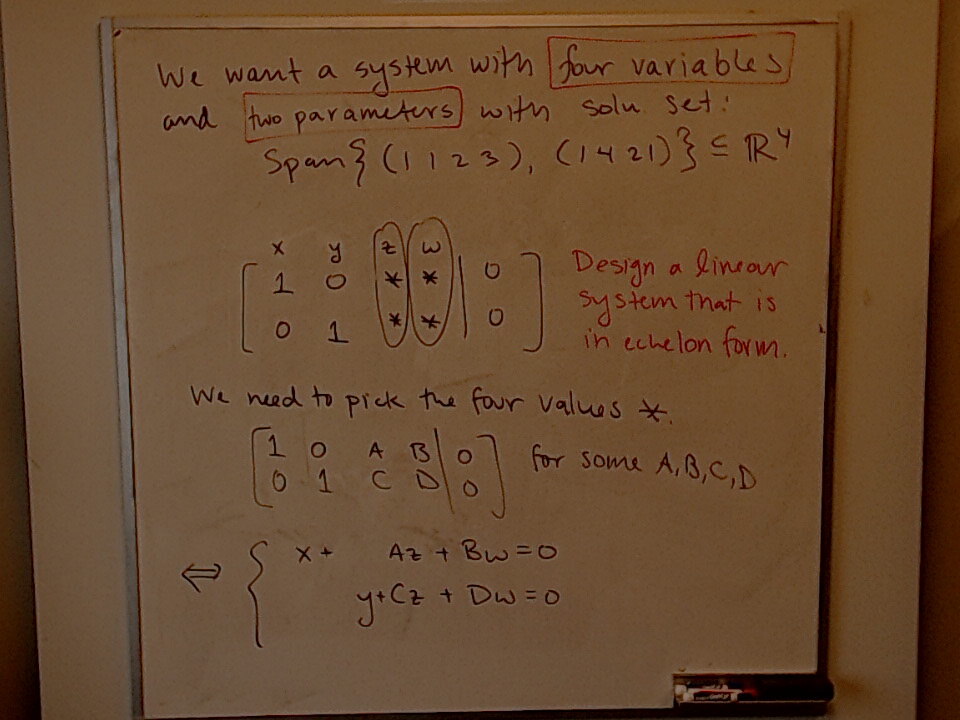 We want a system with four variables
and two parameters with soln set:
Span{ (1 1 2 3), (1 4 2 1)} ⊆ ℝ⁴
x y z w
1 0 * * | 0
0 1 * * | 0
Design a linear
system that is
in echelon form.
We need to pick the four values *.
1 0 A B | 0
0 1 C D | 0
for some A,B,C,D
⇔ { x + Az + Bw = 0
y + Cz + Dw = 0